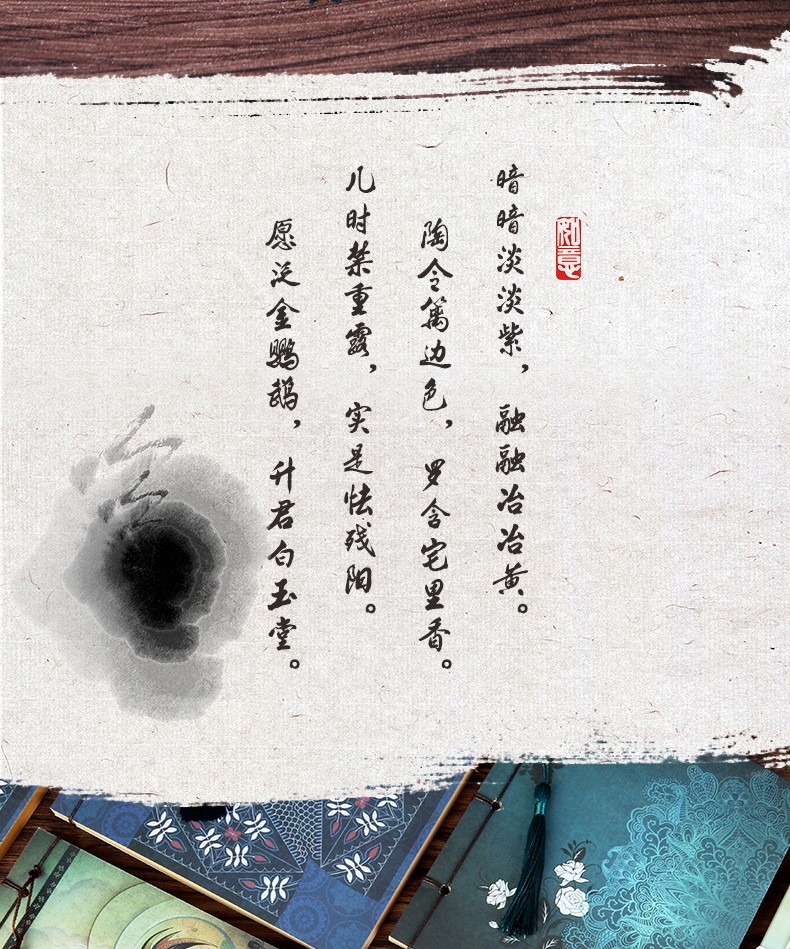 如意
暗暗淡淡紫，融融冶冶黄。
陶令篱边色，罗含宅里香。
几时禁重露，实是怯残阳。
愿泛金鹦鹉，升君白玉堂。